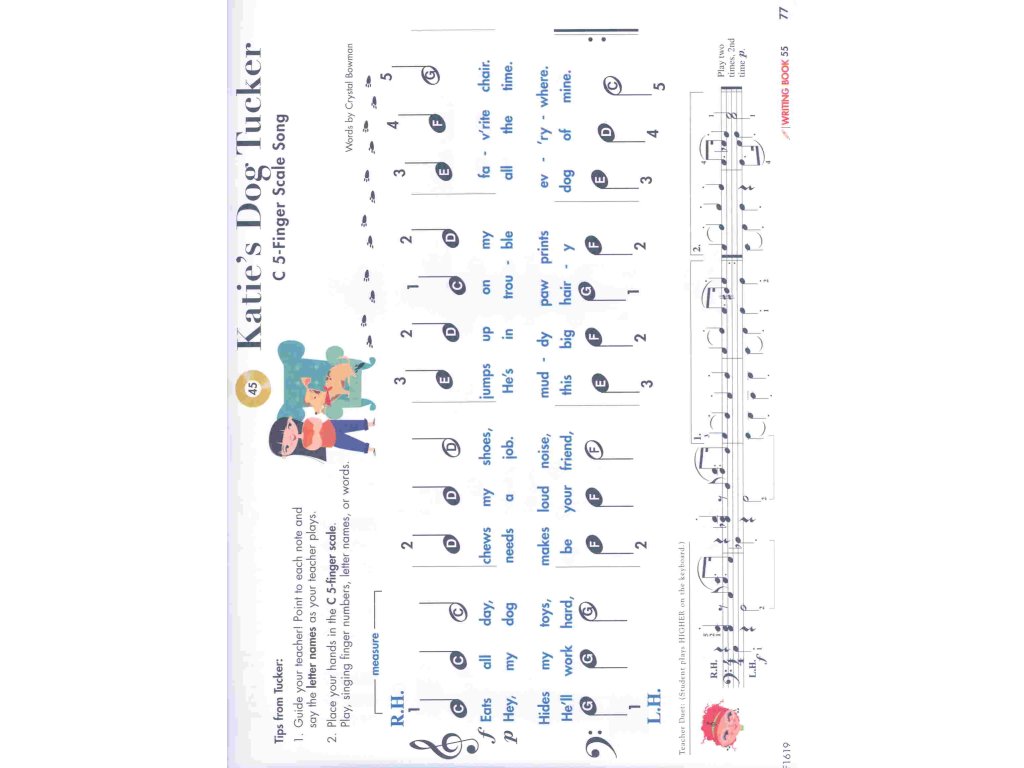 45
Katie's Dog Tucker
C 5-Finger Scale Song
Words by Crystal Bowman
Tips from Tucker:
1. Guide your teacher! Point to each note and
say the letter names as your teacher plays.
2. Place your hands in the C 5-finger scale.
Play, singing finger numbers, letter names, or words.
measure
R.H.
1 2 3 2 1 2 3 4 5
C C C D D D E D C D E F G
f Eats all day, chews my shoes, jumps up on my fa - v'rite chair.
p Hey, my dog needs a job. He's in trou - ble all the time.
Hides my toys, makes loud noise, mud - dy paw prints ev - 'ry - where.
He'll work hard, be your friend, this big hair - y dog of mine.
G G G F F F E F G F E D C
1 2 3 2 1 2 3 4 5
L.H.
Teacher Duet: (Student plays HIGHER on the keyboard.)
1. 2.
R.H.
L.H.
f
Play two
times, 2nd
time p.
F1619
WRITING BOOK 55 77